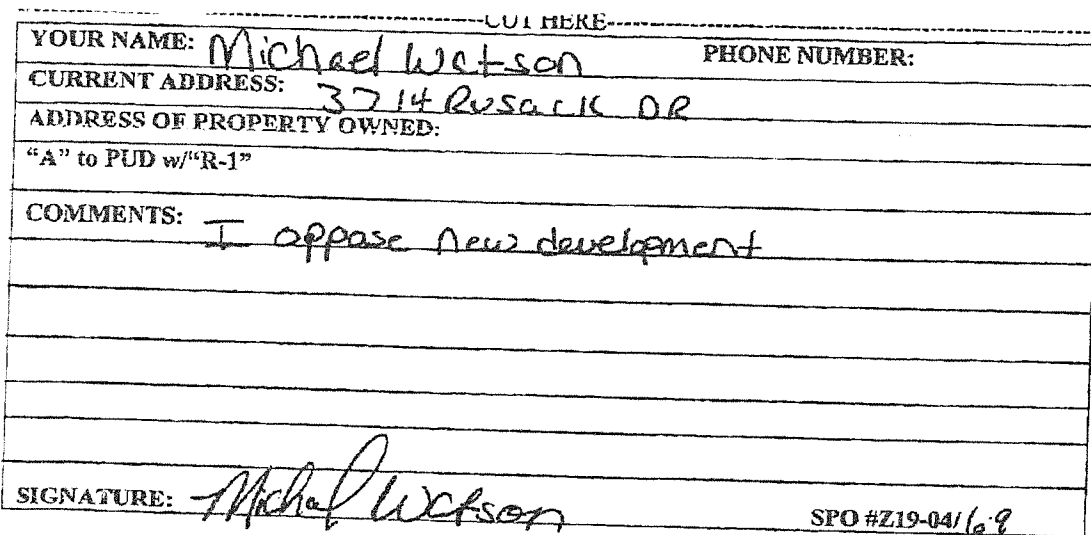 CUT HERE
YOUR NAME: Michael Watson PHONE NUMBER:
CURRENT ADDRESS: 3714 Rusack DR
ADDRESS OF PROPERTY OWNED:
"A" to PUD w/"R-1"
COMMENTS: I oppose new development
SIGNATURE: Michael Watson
SPO #Z19-04/69